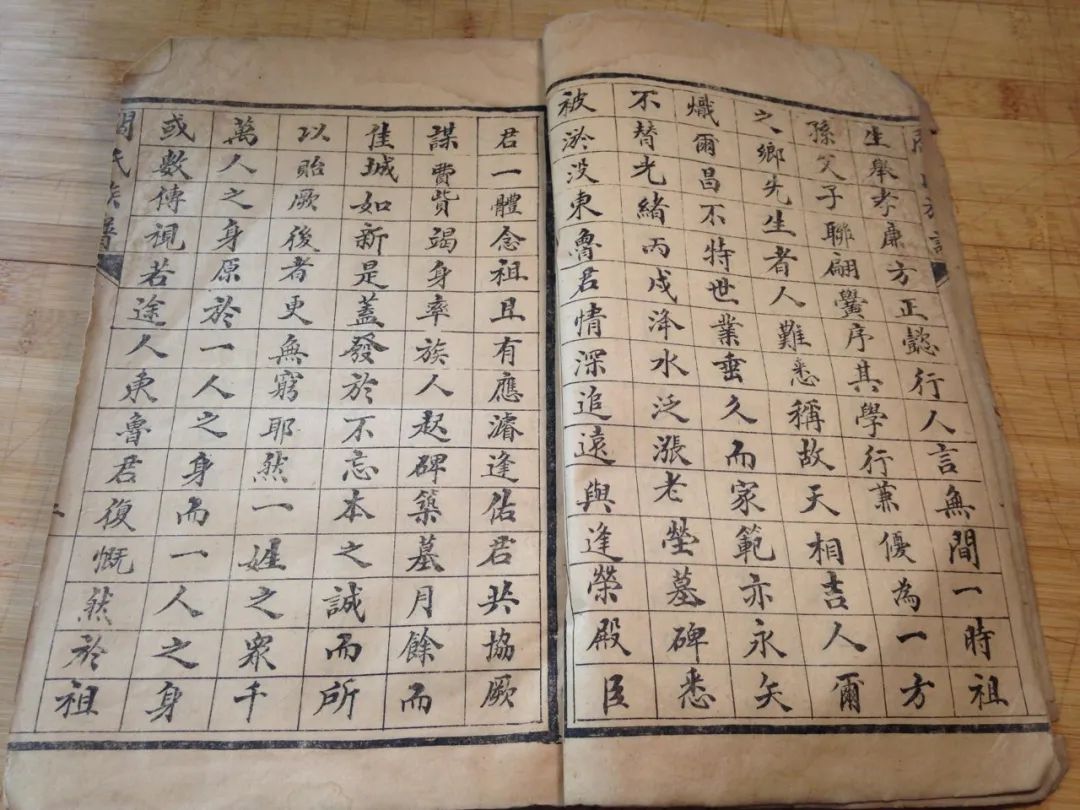 生舉孝廉方正懿行人言無間一時祖
孫父子聯翩黌序其學行兼優為一方
之鄉先生者人難悉稱故天相吉人爾
熾爾昌不特世業垂久而家範亦永矣
不替光緒丙戌洚水泛漲老塋墓碑悉
被淤没東魯君情深追遠與逢榮殿臣
君一體念祖且有應濬逢佑君共協厥
謀費貲竭身率族人起碑築墓月餘而
佳城如新是蓋發於不忘本之誠而所
以貽厥後者更無窮耶然一姓之衆千
萬人之身原於一人之身而一人之身
或數傳視若途人東魯君復慨然於祖
氏族譜